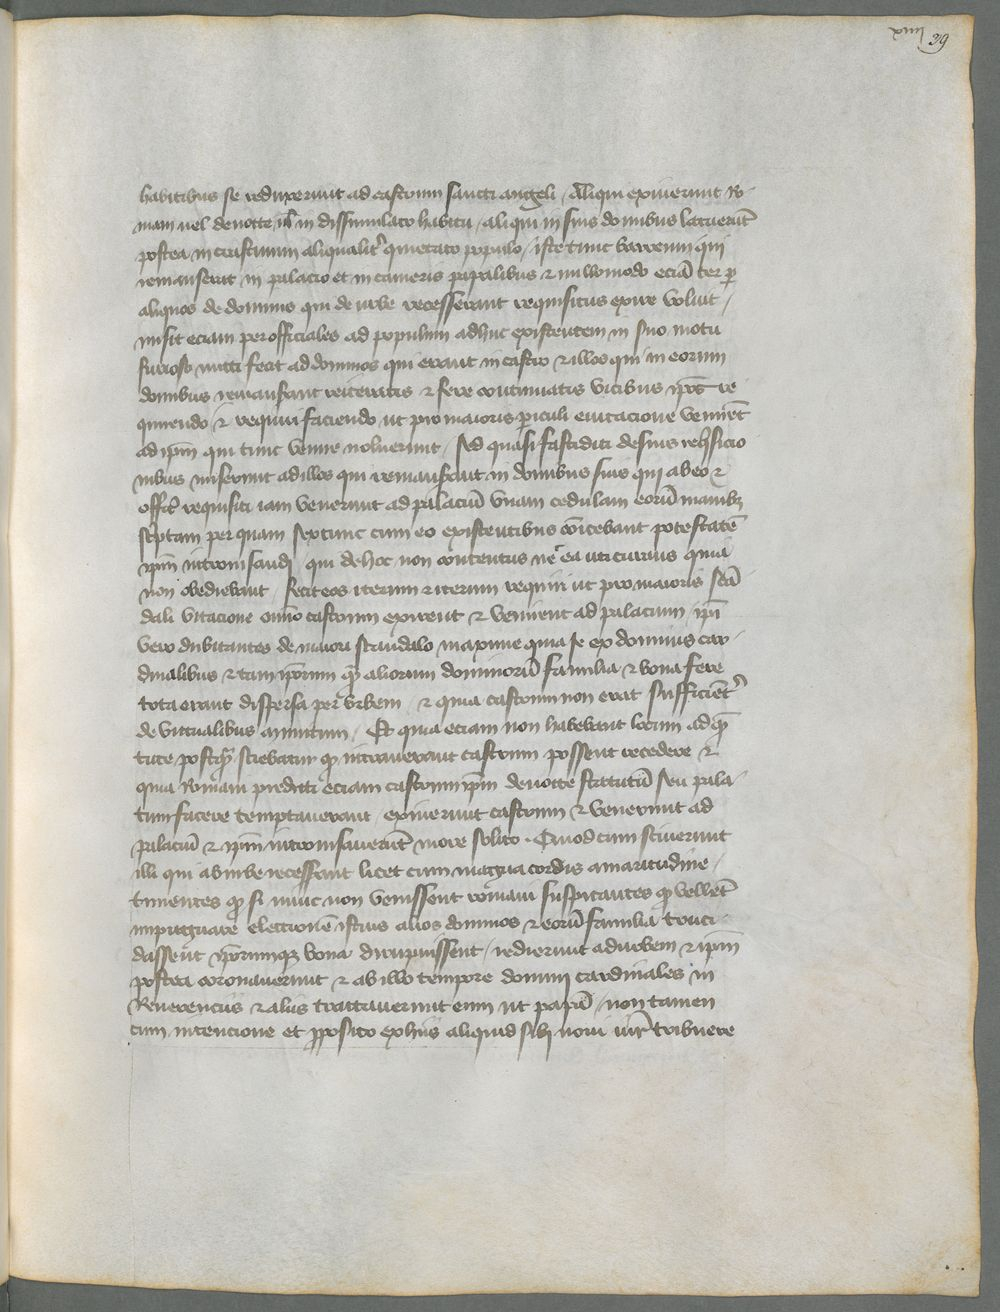 xiiij 219
habitibus se reduxerunt ad castrum sancti angeli / Aliqui exiuerunt Ro-
mam uel de nocte uel in dissimulato habitu / aliqui in suis domibus latuerunt
postea in crastinum aliqualiter quietato populo / iste tunc barrensis qui
remanserat in palacio et in cameris papalibus et nullomodo eciam ter per
aliquos de dominis qui de urbe recesserant requisitus exire voluit /
misit eciam per officiales ad populum adhuc existentem in suo motu
furioso mitti fecit ad dominos qui erant in castro et illos qui in eorum
domibus remanserant reiteratis et fere continuatis vicibus ipsos re-
quirendo et requiri faciendo ut pro maioris periculi euitacione venirent
ad ipsum qui tunc venire noluerunt / Sed quasi fastiditi de suis
nibus miserunt ad illos qui remanserant in domibus suis qui ab eo et
offic requisiti iam venerunt ad palacium vnam cedulam eorum manibus
scriptam per quam sex tunc cum eo existentibus concedebant potestatem
ipsum intronisandi qui de hoc non contentus nec ea uti curauit quia
non obediebant / fecit eos iterum et iterum requiri ut pro maioris scan-
dali vitacione omnino castrum exirent et venirent ad palacium / ipsi
vero dubitantes de maiori scandalo maxime quia sex domini car-
dinalibus et tam ipsorum quam aliorum dominorum familia et bona fere
tota erant dispersa per vrbem / et quia castrum non erat sufficienter
de victualibus munitum / Et quia eciam non habebant locum ad quem
tute postquam sciebatur quod intrauerant castrum possent recedere et
quia Romani predicti eciam castrum ipsum de nocte statutum seu pala-
tum facere temptauerant / exiuerunt castrum et venerunt ad
palacium et ipsum intronisauerunt more solito · Quod cum sciuerunt
illi qui ab urbe recesserant licet cum magna cordis amaritudine /
timentes quod si tunc non venissent romani suspicantes quod vellent
impugnare electionem istius alios dominos et eorum familia truci-
dassent ipsorumque bona diripuissent / redierunt ad urbem et ipsum
postea coronauerunt et ab illo tempore domini cardinales in
Reuerenciis et aliis tractauerunt eum ut papam non tamen
cum intencione et proposito ex hiis aliquid sibi noui iuris tribuere